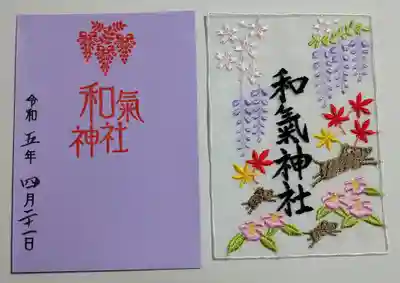 和氣
神社
令和五年四月二十一日
和氣神社